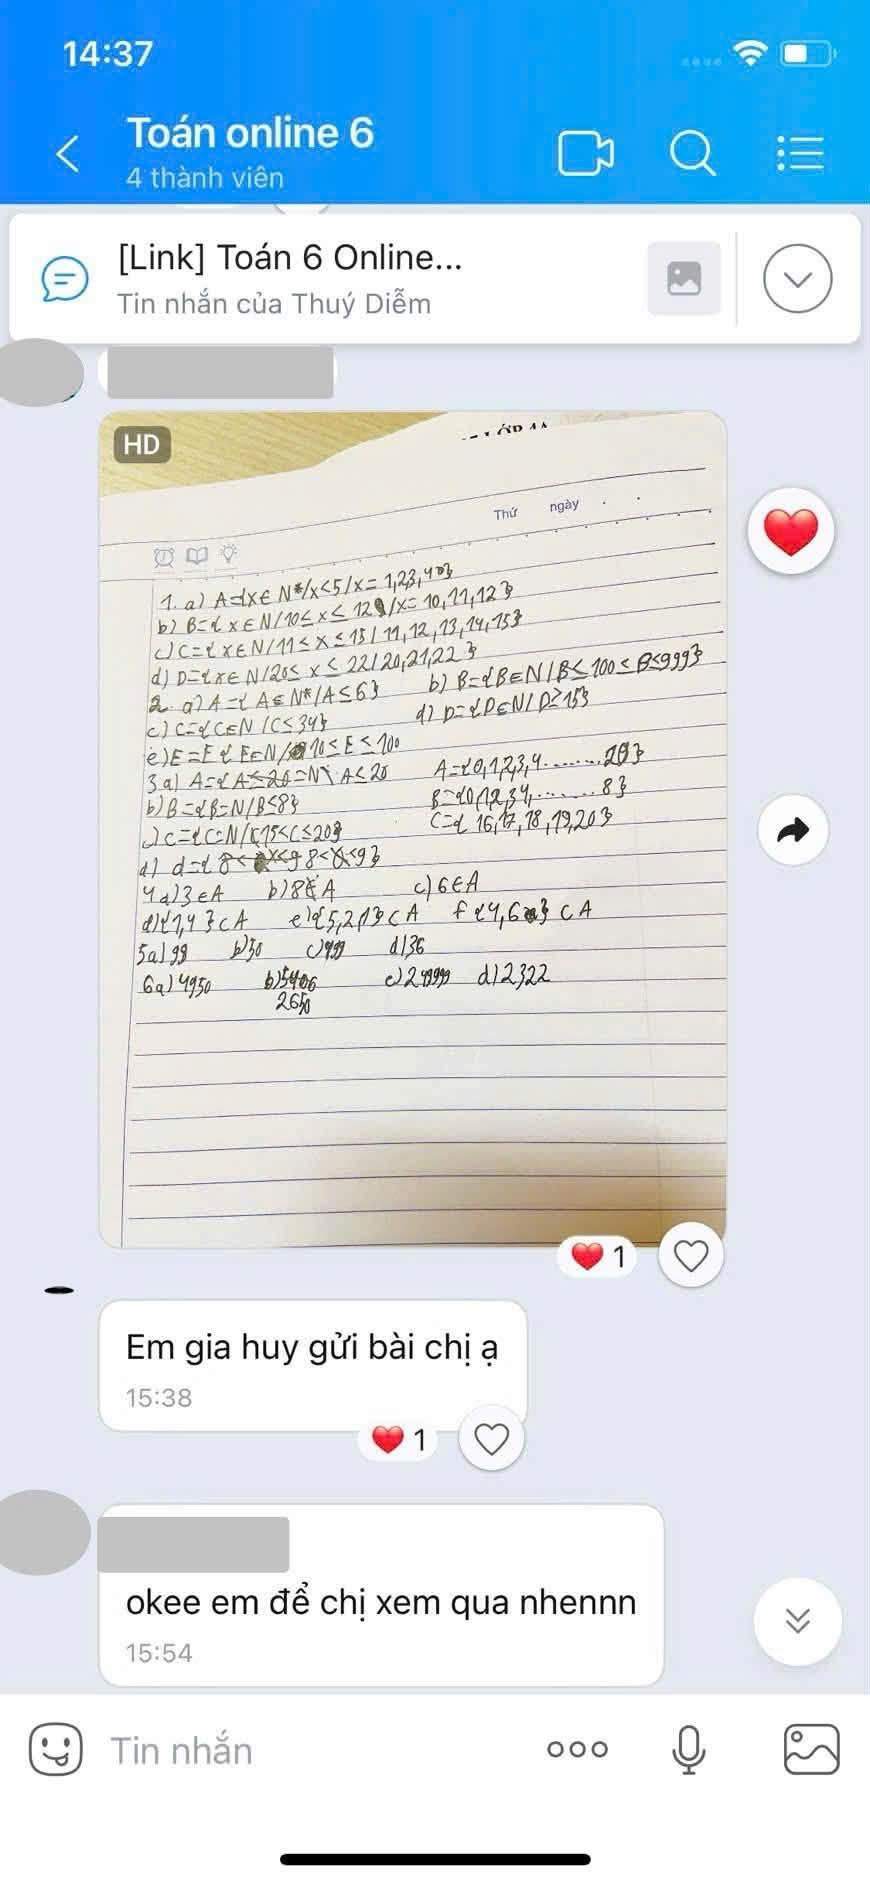 14:37
Toán online 6
4 thành viên
[Link] Toán 6 Online...
Tin nhắn của Thuý Diễm
HD
Thứ ngày
1. a) A={x∈N*/x<5/x=1,2,3,4}
b) B={x∈N/10≤x≤12/x=10,11,12}
c) C={x∈N/11≤x≤15/11,12,13,14,15}
d) D={x∈N/20≤x≤22/20,21,22}
2. a) A={A∈N*/A≤6} b) B={B∈N/B≤100≤B≤999}
c) C={C∈N/C≤34} d) D={D∈N/D≥15}
e) E=E{E∈N/10≤E≤100
3.a) A={A≤20=N\A≤20 A={0,1,2,3,4.......20}
b) B={B=N/B≤8} B={0,1,2,3,4,.......8}
c) C={C=N/15<C≤20} C={16,17,18,19,20}
d) d={8< x<9 8<x<9}
4 a) 3∈A b) 8∉A c) 6∈A
d) {1,4}⊂A e) {5,2,1}⊂A f {4,6}⊂A
5a) 99 b) 50 c) 999 d) 36
6a) 4950 b) 5406 c) 249999 d) 2322
2650
1
Em gia huy gửi bài chị ạ
15:38
1
okee em để chị xem qua nhennn
15:54
Tin nhắn